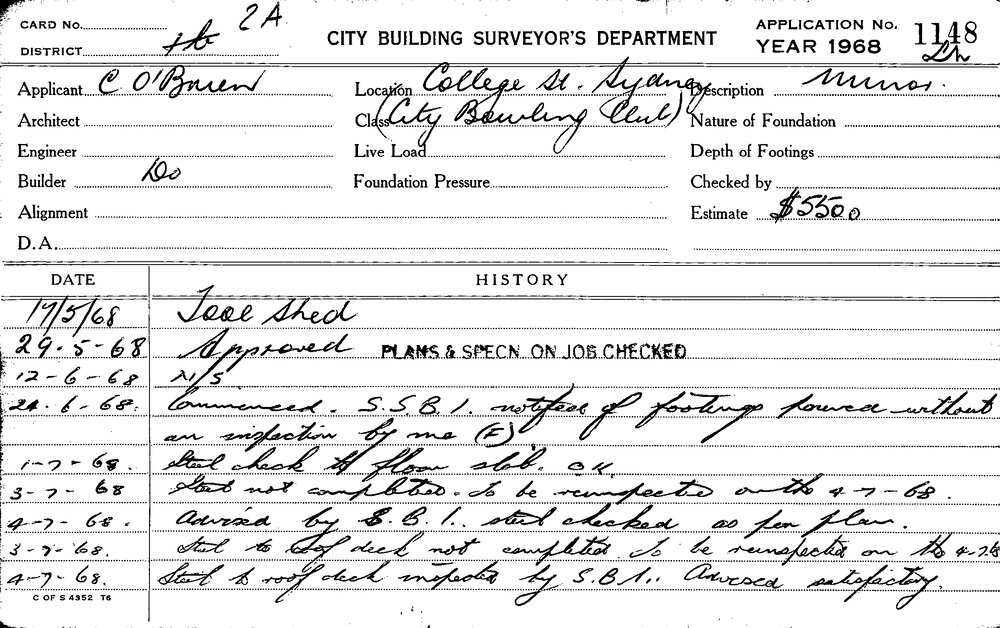 CARD No. 2A
DISTRICT
CITY BUILDING SURVEYOR'S DEPARTMENT
APPLICATION No. 1148
YEAR 1968
Applicant C O'Brien
Location College St. Sydney
Description Minor.
Architect
Class (City Bowling Club)
Nature of Foundation
Engineer
Live Load
Depth of Footings
Builder Do
Foundation Pressure
Checked by
Alignment
Estimate $5500
D.A.
DATE HISTORY
17/5/68 Tool Shed
29-5-68 Approved PLANS & SPECN. ON JOB CHECKED
12-6-68 N/S
24-6-68. Commenced. S.S.B.I. notified of footings poured without
an inspection by me (F)
1-7-68. Steel check to floor slab. OK
3-7-68 Steel not completed. To be reinspected on the 4-7-68.
4-7-68. Advised by S.B.I. steel checked as per plan.
3-7-68. Steel to roof deck not completed. To be reinspected on the 4-7-68
4-7-68. Steel to roof deck inspected by S.B.I. Advised satisfactory.
C OF S 4352 T6